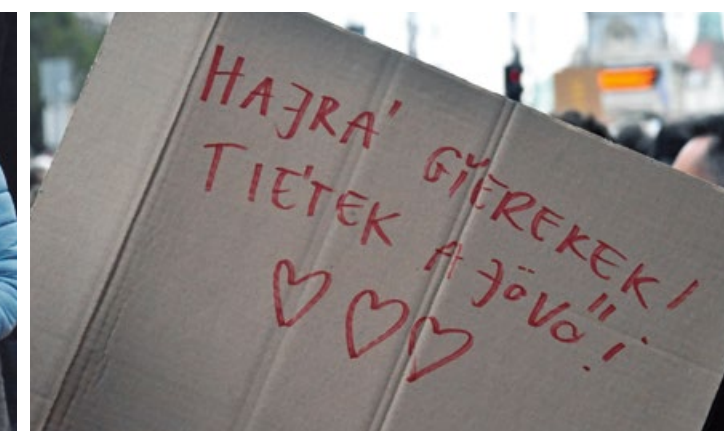 HAJRÁ GYEREKEK!
TIÉTEK A JÖVŐ!